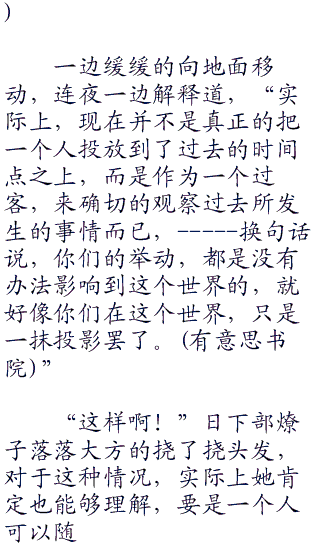 )
一边缓缓的向地面移
动，连夜一边解释道，“实
际上，现在并不是真正的把
一个人投放到了过去的时间
点之上，而是作为一个过
客，来确切的观察过去所发
生的事情而已，-----换句话
说，你们的举动，都是没有
办法影响到这个世界的，就
好像你们在这个世界，只是
一抹投影罢了。(有意思书
院)”
“这样啊！”日下部燎
子落落大方的挠了挠头发，
对于这种情况，实际上她肯
定也能够理解，要是一个人
可以随